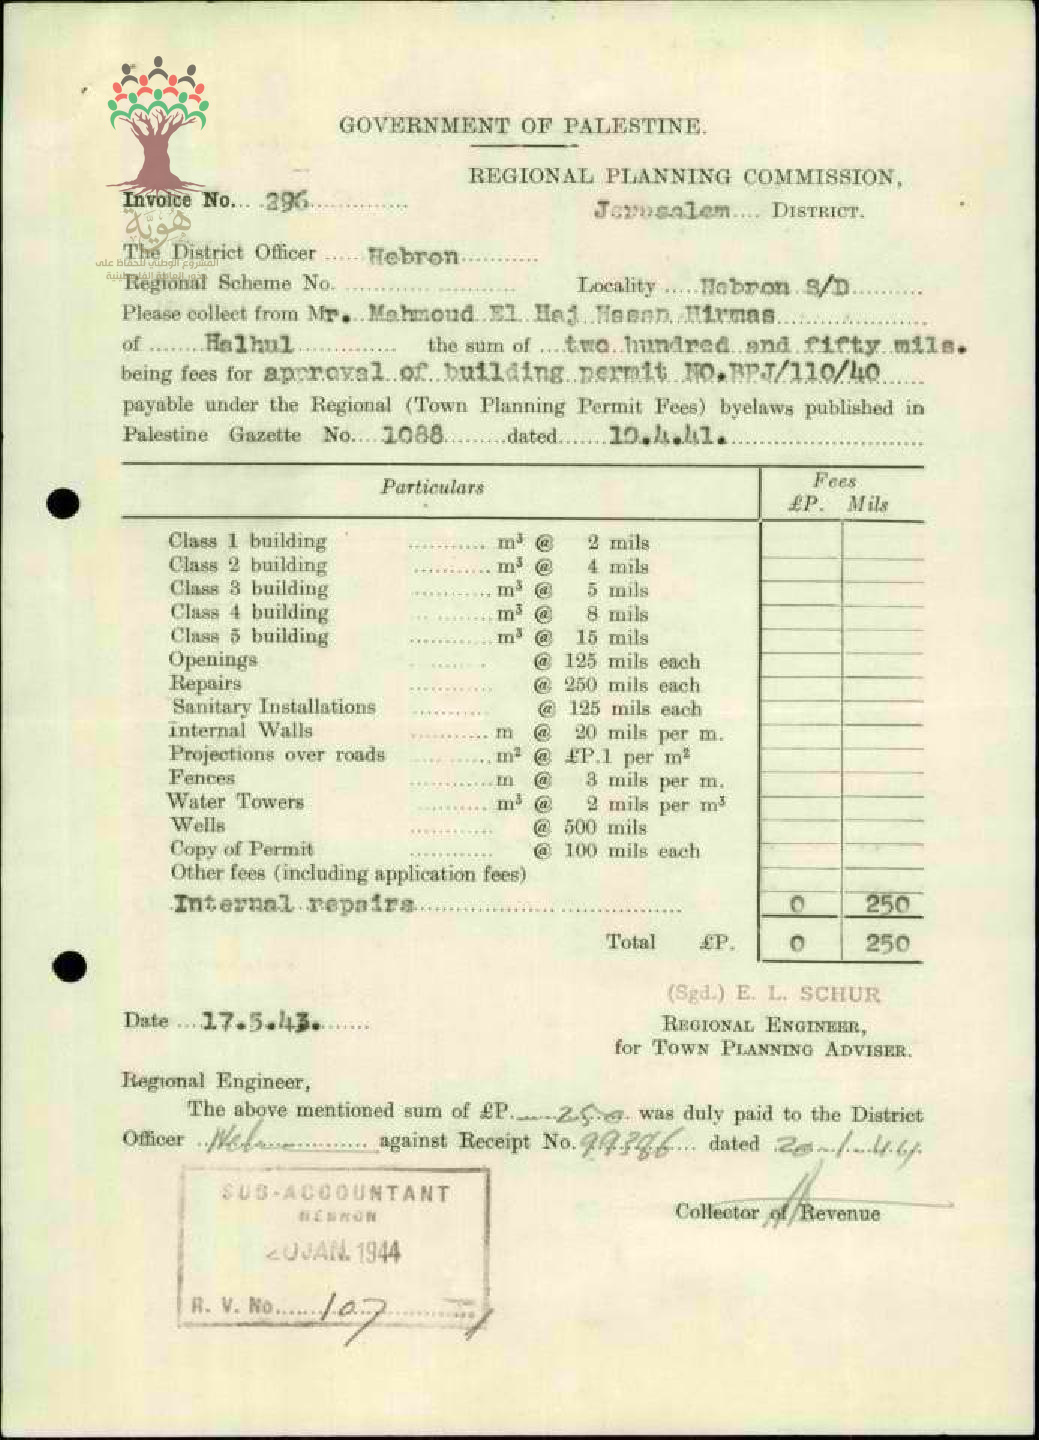 GOVERNMENT OF PALESTINE.
REGIONAL PLANNING COMMISSION,
Invoice No. 296 Jerusalem DISTRICT.
هويّة
المشروع الوطني للحفاظ على
جذور العائلة الفلسطينية
The District Officer Hebron
Regional Scheme No. Locality Hebron S/D
Please collect from Mr. Mahmoud El Haj Hasan Hirmas
of Halhul the sum of two hundred and fifty mils.
being fees for approval of building permit NO.BPJ/110/40
payable under the Regional (Town Planning Permit Fees) byelaws published in
Palestine Gazette No. 1088 dated 10.4.41.
Particulars Fees
£P. Mils
Class 1 building m³ @ 2 mils
Class 2 building m³ @ 4 mils
Class 3 building m³ @ 5 mils
Class 4 building m³ @ 8 mils
Class 5 building m³ @ 15 mils
Openings @ 125 mils each
Repairs @ 250 mils each
Sanitary Installations @ 125 mils each
Internal Walls m @ 20 mils per m.
Projections over roads m² @ £P.1 per m²
Fences m @ 3 mils per m.
Water Towers m³ @ 2 mils per m³
Wells @ 500 mils
Copy of Permit @ 100 mils each
Other fees (including application fees)
Internal repairs 0 250
Total £P. 0 250
(Sgd.) E. L. SCHUR
Date 17.5.43. REGIONAL ENGINEER,
for TOWN PLANNING ADVISER.
Regional Engineer,
The above mentioned sum of £P. 250 was duly paid to the District
Officer against Receipt No. 99386 dated 20.1.44.
SUB-ACCOUNTANT
HEBRON
20 JAN. 1944
R. V. No. 107
Collector of Revenue